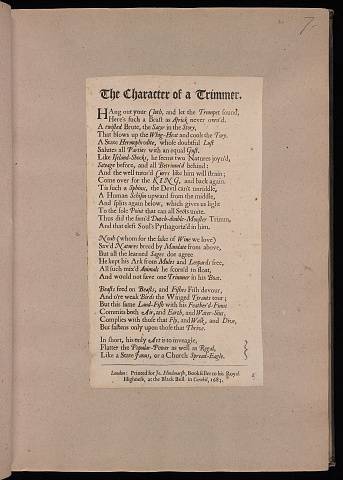 7.
The Character of a Trimmer.
HAng out your Cloth, and let the Trumpet sound,
Here's such a Beast as Africk never own'd.
A twisted Brute, the Satyr in the Story,
That blows up the Whig-Heat and cools the Tory.
A State Hermophrodite, whose doubtful Lust
Salutes all Parties with an equal Gust.
Like Iseland-Shocks, he seems two Natures joyn'd,
Savage before, and all Betrimm'd behind:
And the well tutor'd Curr like him will strain;
Come over for the KING, and back again.
'Tis such a Sphinx, the Devil can't unriddle,
A Human Schism upward from the middle,
And splits again below, which gives us light
To the sole Point that can all Sects unite.
Thus did the fam'd Dutch-double-Monster Trimm,
And that cleft Soul's Pythagoriz'd in him.
Noah (whom for the sake of Wine we love)
Sav'd Natures breed by Mandate from above,
But all the learned Sages doe agree
He kept his Ark from Mules and Leopards free,
All such mix'd Animals he scorn'd to float,
And would not save one Trimmer in his Boat.
Beasts feed on Beasts, and Fishes Fish devour,
And o're weak Birds the Winged Tyrants tour;
But this same Land-Fish with his Feather'd-Finns
Commits both Air, and Earth, and Water-Sins,
Complies with those that Fly, and Walk, and Dive,
But fastens only upon those that Thrive.
In short, his only Art is to inveagle,
Flatter the Popular-Power as well as Regal,
Like a State Janus, or a Church Spread-Eagle.
London: Printed for Jo. Hindmarsh, Bookseller to his Royal
Highness, at the Black Bull in Cornhil, 1683.